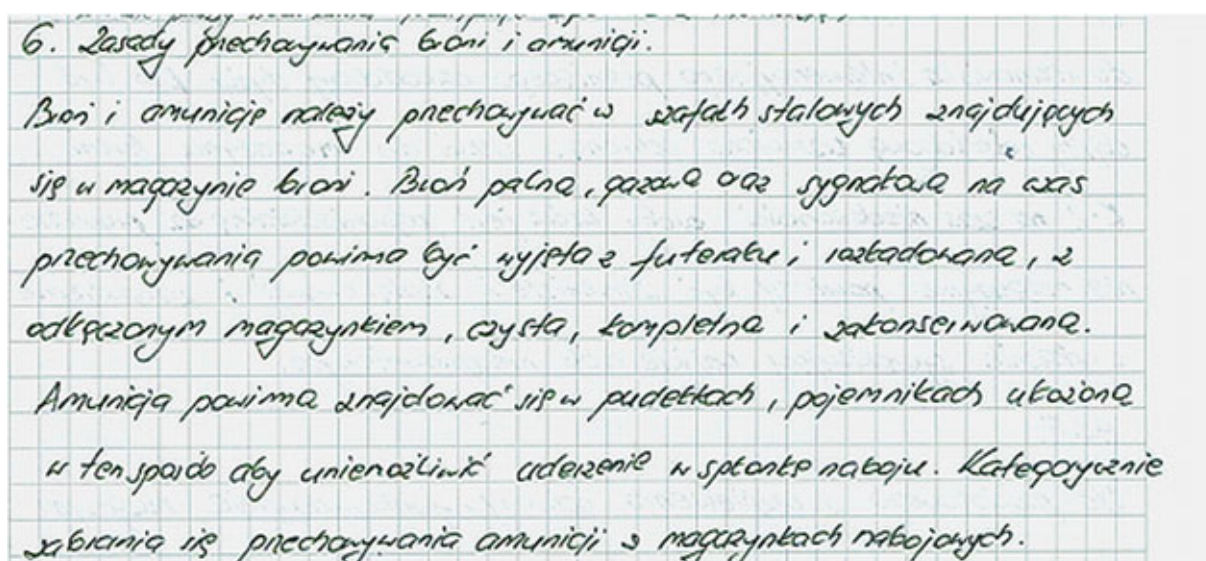 6. Zasady przechowywania broni i amunicji.
Broń i amunicję należy przechowywać w szafach stalowych znajdujących
się w magazynie broni. Broń palna, gazowa oraz sygnałowa na czas
przechowywania powinna być wyjęta z futerału i rozładowana, z
odłączonym magazynkiem, czysta, kompletna i zakonserwowana.
Amunicja powinna znajdować się w pudełkach, pojemnikach ułożona
w ten sposób aby uniemożliwić uderzenie w spłonkę naboju. Kategorycznie
zabrania się przechowywania amunicji w magazynkach nabojowych.